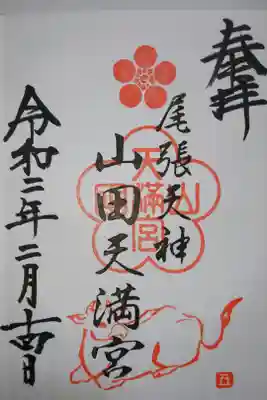 奉拝
尾張天神
山田天満宮
令和二年二月十四日
山田天満宮